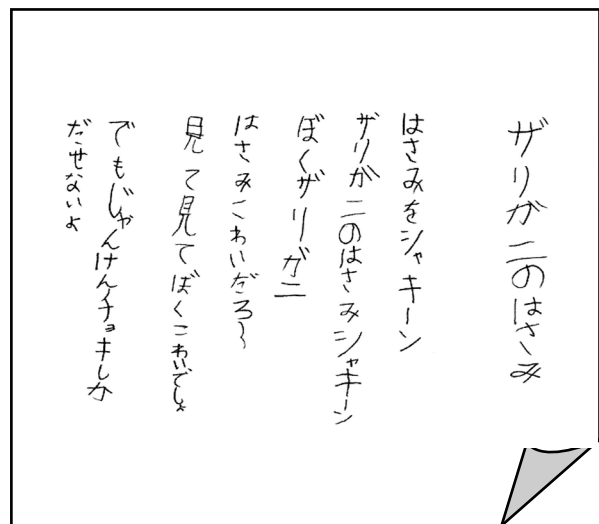 ザリガニのはさみ
はさみをシャキーン
ザリガニのはさみシャキーン
ぼくザリガニ
はさみこわいだろ〜
見て見てぼくこわいでしょ
でもじゃんけんチョキしか
だせないよ